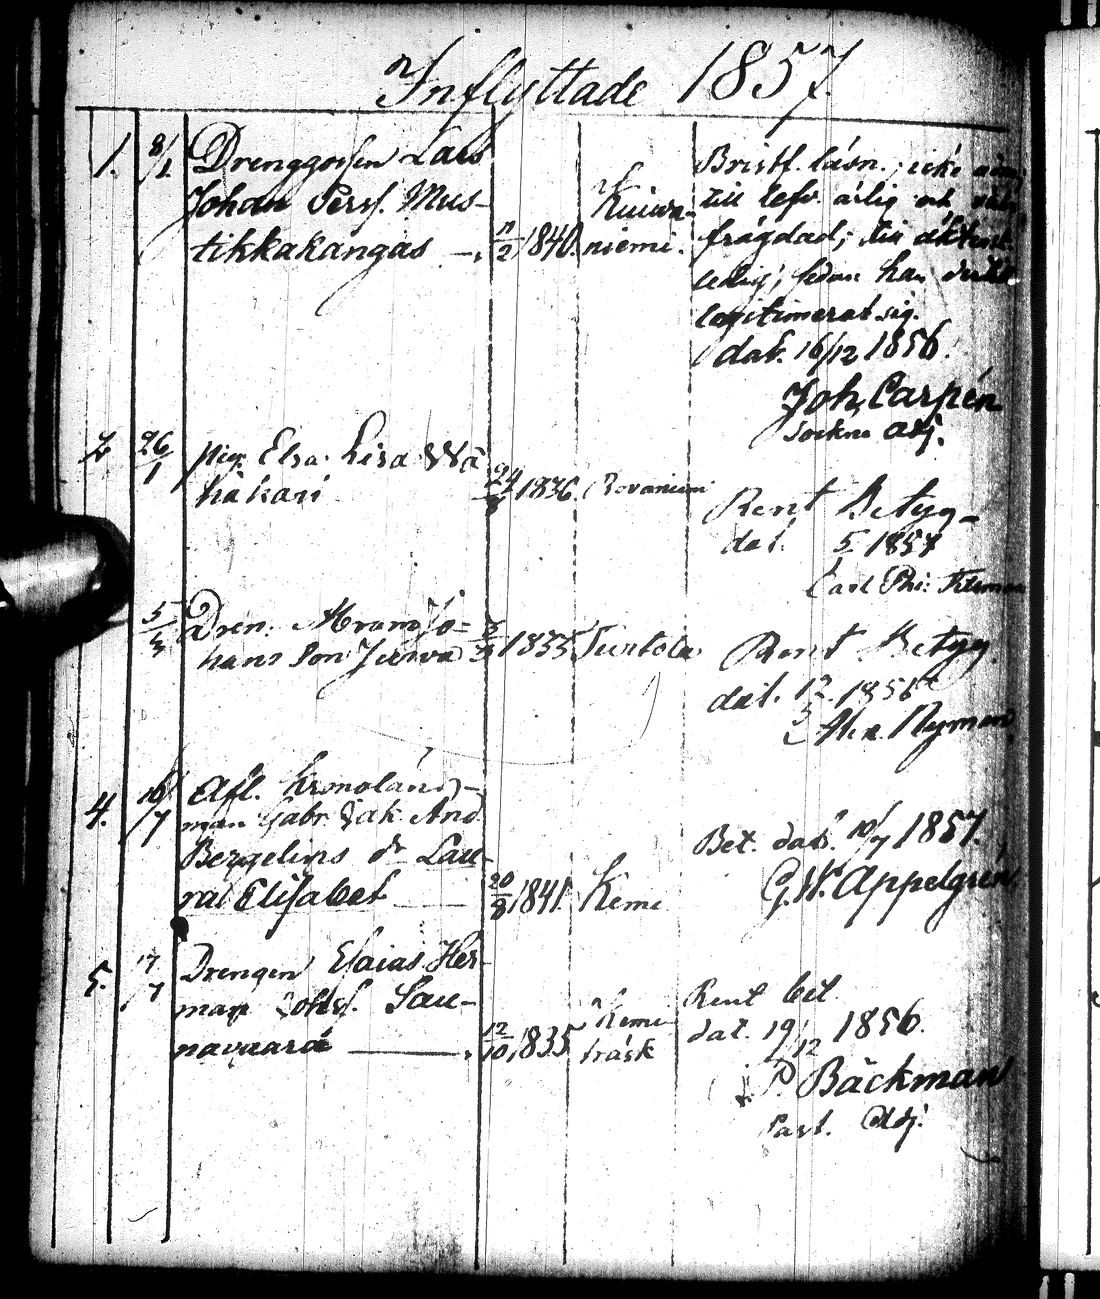 Inflyttade 1857.
1. 8/1 Drenggossen Lars
Johan Persf. Mus-
tikkakangas 11/2 1840. Kuiva-
niemi.
Bristf. läsn.; icke
till lefv. ärlig och
frägdad; till äktensk.
ledig; sedan han
legitimerat sig.
dat. 16/12 1856.
Joh. Carpén
Sockne adj.
2. 26/1 pig. Elsa Lisa
1836. Rovaniemi
Rent Betyg
dat. 5/1 1857
Carl Ph:
5/3 Dren. Abram Jo-
hans Son Jurva 1835 Turtola
Rent Betyg.
dat. 12/3 185
Alex. Nyman
4. 16/7 Afl. Kronolän-
man Gabr. Isak And.
Bergelins dr Lau-
ra Elisabet 20/8 1841. Kemi
Bet. dat. 10/7 1857.
G. W. Appelgrén
5. 17/7 Drengen Esaias Her-
man Sau-
navaara 12/10 1835 Kemi
träsk
Rent bet.
dat. 19/12 1856.
J. P. Bäckman
Past. Adj.